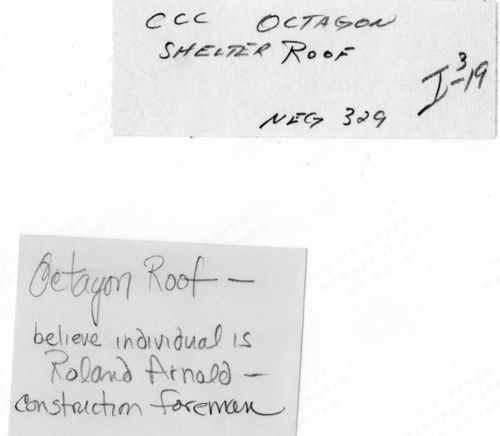 CCC OCTAGON
SHELTER ROOF
I-19
3
NEG 329
Octagon Roof —
believe individual is
Roland Arnold —
construction foreman
THIS PAPER
MANUFACTURED
BY KODAK